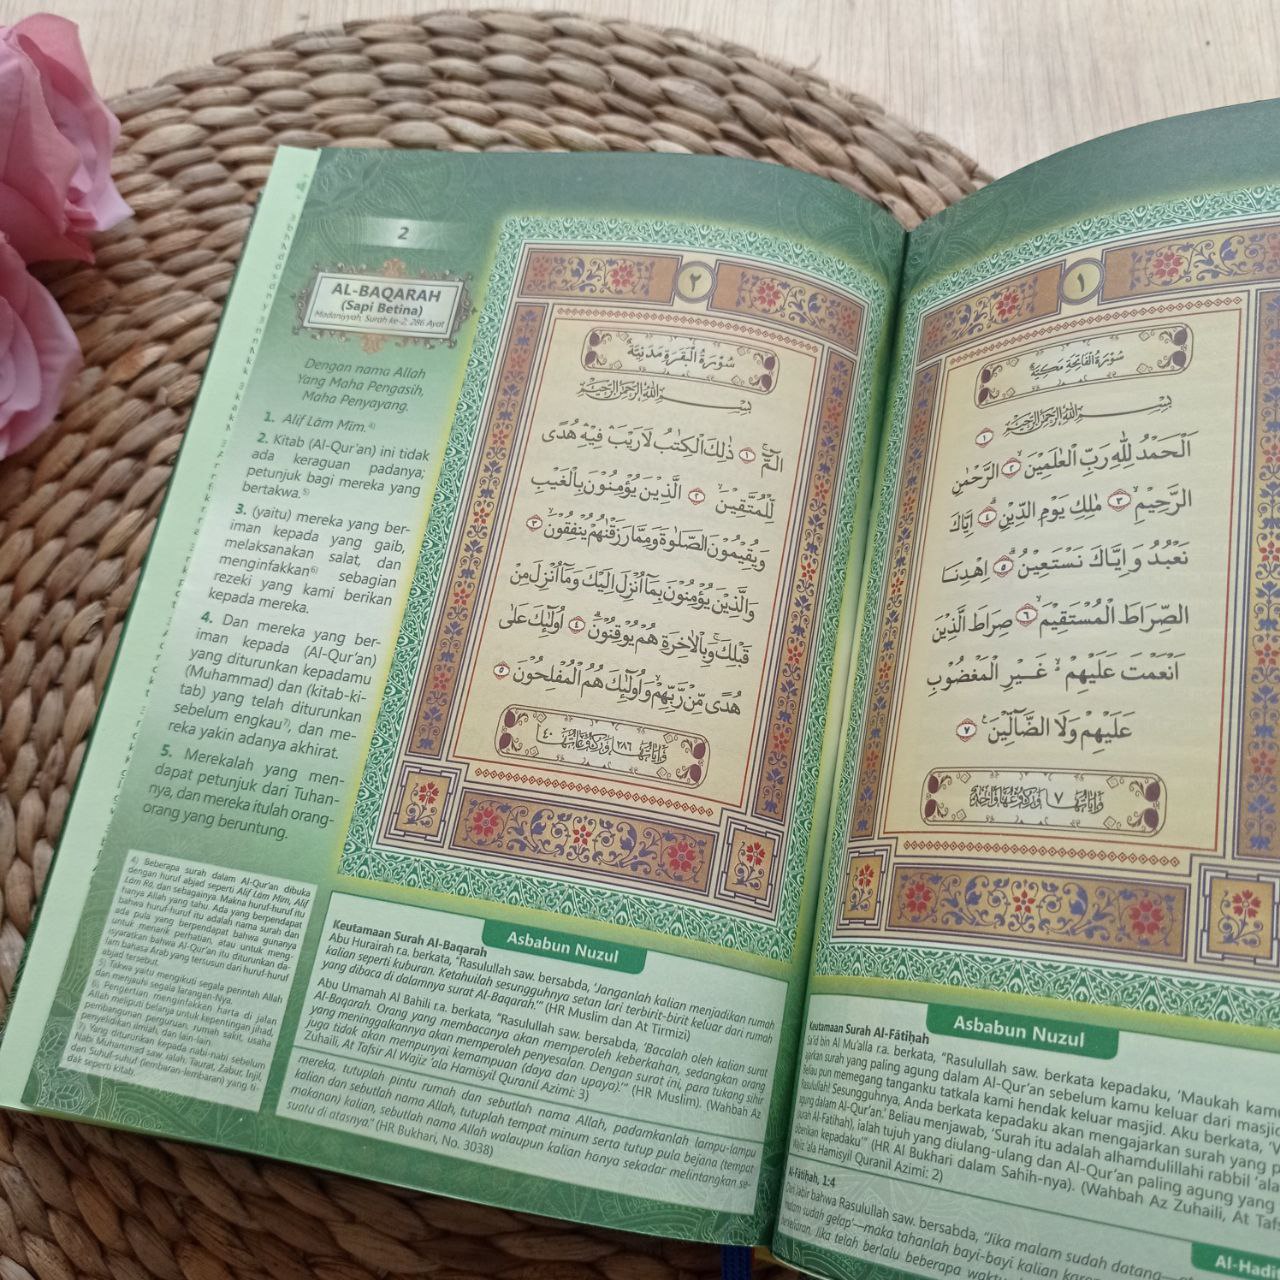 2
AL-BAQARAH
(Sapi Betina)
Madaniyyah, Surah ke-2, 286 Ayat
Dengan nama Allah
Yang Maha Pengasih,
Maha Penyayang.
1. Alif Lām Mīm.⁴⁾
2. Kitab (Al-Qur'an) ini tidak
ada keraguan padanya;
petunjuk bagi mereka yang
bertakwa.⁵⁾
3. (yaitu) mereka yang ber-
iman kepada yang gaib,
melaksanakan salat, dan
menginfakkan⁶⁾ sebagian
rezeki yang kami berikan
kepada mereka.
4. Dan mereka yang ber-
iman kepada (Al-Qur'an)
yang diturunkan kepadamu
(Muhammad) dan (kitab-ki-
tab) yang telah diturunkan
sebelum engkau⁷⁾, dan me-
reka yakin adanya akhirat.
5. Merekalah yang men-
dapat petunjuk dari Tuhan-
nya, dan mereka itulah orang-
orang yang beruntung.
4) Beberapa surah dalam Al-Qur'an dibuka
dengan huruf abjad seperti Alif Lām Mīm, Alif
Lām Rā, dan sebagainya. Makna huruf-huruf itu
hanya Allah yang tahu. Ada yang berpendapat
bahwa huruf-huruf itu adalah nama surah dan
ada pula yang berpendapat bahwa gunanya
untuk menarik perhatian, atau untuk meng-
isyaratkan bahwa Al-Qur'an itu diturunkan da-
lam bahasa Arab yang tersusun dari huruf-huruf
abjad tersebut.
5) Takwa yaitu mengikuti segala perintah Allah
dan menjauhi segala larangan-Nya.
6) Pengertian menginfakkan harta di jalan
Allah meliputi belanja untuk kepentingan jihad,
pembangunan perguruan, rumah sakit, usaha
penyelidikan ilmiah, dan lain-lain.
7) Yang diturunkan kepada nabi-nabi sebelum
Nabi Muhammad saw. ialah: Taurat, Zabur, Injil,
dan Suhuf-suhuf (lembaran-lembaran) yang ti-
dak seperti kitab.
٢
سُوْرَةُ الْبَقَرَةِ مَدَنِيَّةٌ
بِسْمِ اللّٰهِ الرَّحْمٰنِ الرَّحِيْمِ
الۤمّۤ ۚ ١ ذٰلِكَ الْكِتٰبُ لَا رَيْبَ ۛ فِيْهِ ۛ هُدًى
لِّلْمُتَّقِيْنَ ۙ ٢ الَّذِيْنَ يُؤْمِنُوْنَ بِالْغَيْبِ
وَيُقِيْمُوْنَ الصَّلٰوةَ وَمِمَّا رَزَقْنٰهُمْ يُنْفِقُوْنَ ۙ ٣
وَالَّذِيْنَ يُؤْمِنُوْنَ بِمَآ اُنْزِلَ اِلَيْكَ وَمَآ اُنْزِلَ مِنْ
قَبْلِكَ ۚ وَبِالْاٰخِرَةِ هُمْ يُوْقِنُوْنَ ۗ ٤ اُولٰۤىِٕكَ عَلٰى
هُدًى مِّنْ رَّبِّهِمْ ۙ وَاُولٰۤىِٕكَ هُمُ الْمُفْلِحُوْنَ ٥
وَاٰيَاتُهَا ٢٨٦ وَرُكُوْعَاتُهَا ٤٠
Asbabun Nuzul
Keutamaan Surah Al-Baqarah
Abu Hurairah r.a. berkata, "Rasulullah saw. bersabda, 'Janganlah kalian menjadikan rumah
kalian seperti kuburan. Ketahuilah sesungguhnya setan lari terbirit-birit keluar dari rumah
yang dibaca di dalamnya surat Al-Baqarah.'" (HR Muslim dan At Tirmizi)
Abu Umamah Al Bahili r.a. berkata, "Rasulullah saw. bersabda, 'Bacalah oleh kalian surat
Al-Baqarah. Orang yang membacanya akan memperoleh keberkahan, sedangkan orang
yang meninggalkannya akan memperoleh penyesalan. Dengan surat ini, para tukang sihir
juga tidak akan mempunyai kemampuan (daya dan upaya).'" (HR Muslim). (Wahbah Az
Zuhaili, At Tafsir Al Wajiz 'ala Hamisyil Quranil Azimi: 3)
mereka, tutuplah pintu rumah dan sebutlah nama Allah, padamkanlah lampu-lampu
kalian dan sebutlah nama Allah, tutuplah tempat minum serta tutup pula bejana (tempat
makanan) kalian, sebutlah nama Allah walaupun kalian hanya sekadar melintangkan se-
suatu di atasnya." (HR Bukhari, No. 3038)
١
سُوْرَةُ الْفَاتِحَةِ مَكِّيَّةٌ
بِسْمِ اللّٰهِ الرَّحْمٰنِ الرَّحِيْمِ ١
اَلْحَمْدُ لِلّٰهِ رَبِّ الْعٰلَمِيْنَ ۙ ٢ الرَّحْمٰنِ
الرَّحِيْمِ ۙ ٣ مٰلِكِ يَوْمِ الدِّيْنِ ۗ ٤ اِيَّاكَ
نَعْبُدُ وَاِيَّاكَ نَسْتَعِيْنُ ۗ ٥ اِهْدِنَا
الصِّرَاطَ الْمُسْتَقِيْمَ ۙ ٦ صِرَاطَ الَّذِيْنَ
اَنْعَمْتَ عَلَيْهِمْ ۙ غَيْرِ الْمَغْضُوْبِ
عَلَيْهِمْ وَلَا الضَّاۤلِّيْنَ ۚ ٧
وَاٰيَاتُهَا ٧ وَرُكُوْعُهَا وَاحِدَةٌ
Asbabun Nuzul
Keutamaan Surah Al-Fātiḥah
Sa'id bin Al Mu'alla r.a. berkata, "Rasulullah saw. berkata kepadaku, 'Maukah kamu
ajarkan surah yang paling agung dalam Al-Qur'an sebelum kamu keluar dari masjid
Beliau pun memegang tanganku tatkala kami hendak keluar masjid. Aku berkata, 'W
Rasulullah! Sesungguhnya, Anda berkata kepadaku akan mengajarkan surah yang p
agung dalam Al-Qur'an.' Beliau menjawab, 'Surah itu adalah alhamdulillahi rabbil 'ala
(surah Al-Fatihah), ialah tujuh yang diulang-ulang dan Al-Qur'an paling agung yang
diberikan kepadaku'" (HR Al Bukhari dalam Sahih-nya). (Wahbah Az Zuhaili, At Tafs
Wajiz 'ala Hamisyil Quranil Azimi: 2)
Al-Hadis
Al-Fātiḥah, 1:4
Dari Jabir bahwa Rasulullah saw. bersabda, "Jika malam sudah datang
malam sudah gelap'—maka tahanlah bayi-bayi kalian kare
berkeliaran. Jika telah berlalu beberapa waktu